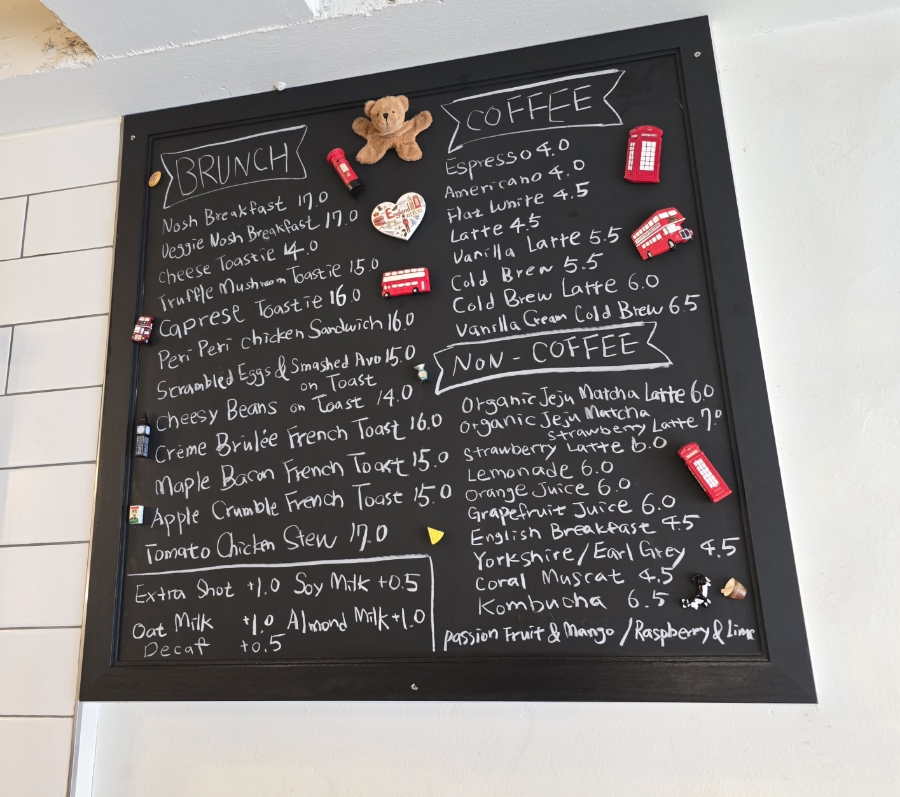 BRUNCH
Nosh Breakfast 17.0
Veggie Nosh Breakfast 17.0
Cheese Toastie 14.0
Truffle Mushroom Toastie 15.0
Caprese Toastie 16.0
Peri Peri chicken Sandwich 16.0
Scrambled Eggs & Smashed Avo 15.0
on Toast
Cheesy Beans on Toast 14.0
Crème Brulée French Toast 16.0
Maple Bacon French Toast 15.0
Apple Crumble French Toast 15.0
Tomato Chicken Stew 17.0
Extra Shot +1.0 Soy Milk +0.5
Oat Milk +1.0 Almond Milk +1.0
Decaf +0.5
England
COFFEE
Espresso 4.0
Americano 4.0
Flat White 4.5
Latte 4.5
Vanilla Latte 5.5
Cold Brew 5.5
Cold Brew Latte 6.0
Vanilla Cream Cold Brew 6.5
NON-COFFEE
Organic Jeju Matcha Latte 6.0
Organic Jeju Matcha
strawberry Latte 7.0
Strawberry Latte 6.0
Lemonade 6.0
Orange Juice 6.0
Grapefruit Juice 6.0
English Breakfast 4.5
Yorkshire/Earl Grey 4.5
Coral Muscat 4.5
Kombucha 6.5
passion Fruit & Mango / Raspberry & Lime